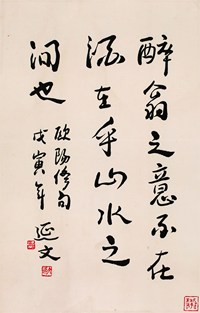 醉翁之意不在
酒在乎山水之
间也
欧阳修句
戊寅年 延文